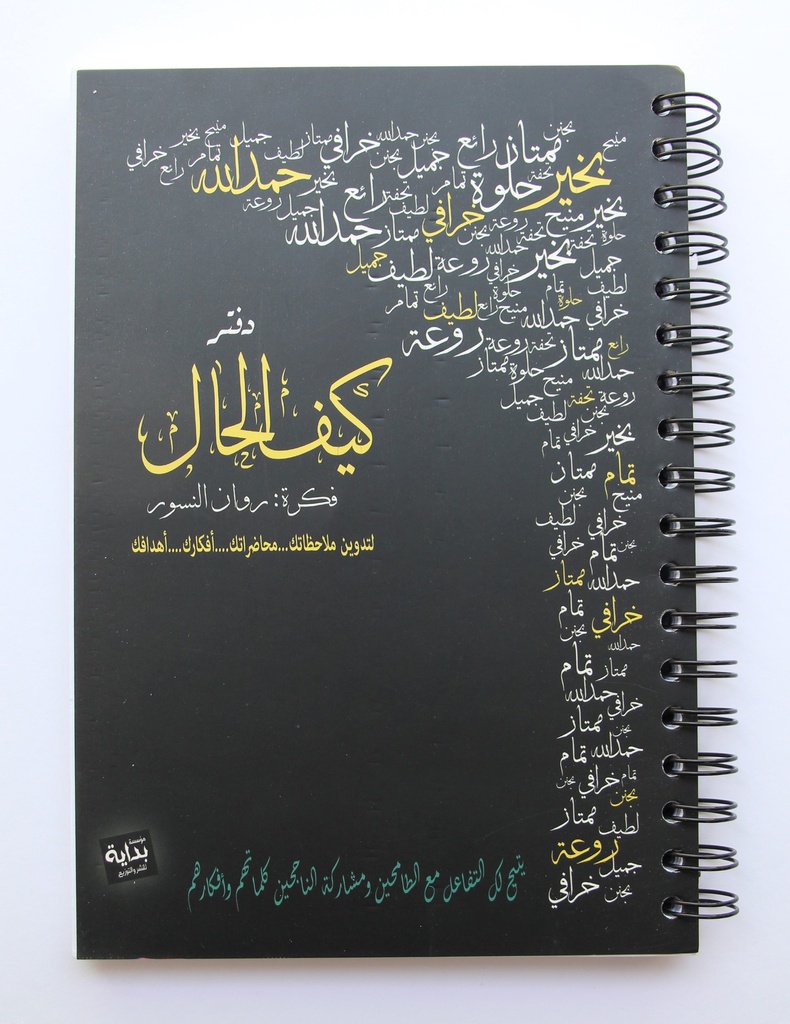 منيح
يجنن ممتاز رائع يجنن حمدالله خرافي ممتاز جميل منيح بخير
بخير تحفة حلوة تمام جميل يجنن لطيف تمام خرافي
بخير حمدالله رائع
بخير منيح روعة خرافي لطيف تحفة رائع جميل روعة
حلوة تحفة تحفة يجنن ممتاز حمدالله
جميل بخير حمدالله خرافي روعة لطيف جميل
لطيف تمام حلوة رائع
خرافي حلوة حمدالله منيح رائع لطيف تمام
رائع ممتاز تحفة روعة روعة
حمدالله منيح حلوة ممتاز
روعة تحفة جميل
يجنن لطيف
بخير خرافي تمام
تمام ممتاز
منيح يجنن
خرافي لطيف
يجنن تمام خرافي
حمدالله ممتاز
خرافي تمام
يجنن
حمدالله
ممتاز تمام
حمدالله
خرافي ممتاز
يجنن
حمدالله تمام
تمام خرافي يجنن
يجنن ممتاز
لطيف
روعة
جميل
يجنن خرافي
دفتر
كيف الحال
فكرة: روان النسور
لتدوين ملاحظاتك...محاضراتك....أفكارك....أهدافك
يتيح لك التفاعل مع الطامحين ومشاركة الناجحين كلماتهم وأفكارهم
مؤسسة
بداية
للنشر والتوزيع